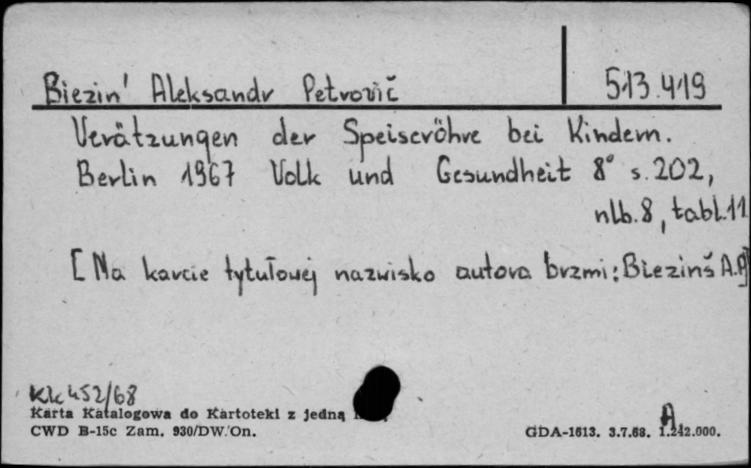 Biezin' Aleksandr Petrovič 513.419
Verätzungen der Speiseröhre bei Kindern.
Berlin 1967 Volk und Gesundheit 8° s. 202,
nlb. 8, tabl. 11
[Na karcie tytułowej nazwisko autora brzmi: Biezinš A.P]
Kk 452/68
Karta Katalogowa do Kartoteki z jedną
CWD B-15c Zam. 930/DW.On.
A
GDA-1613. 3.7.68. 1.242.000.